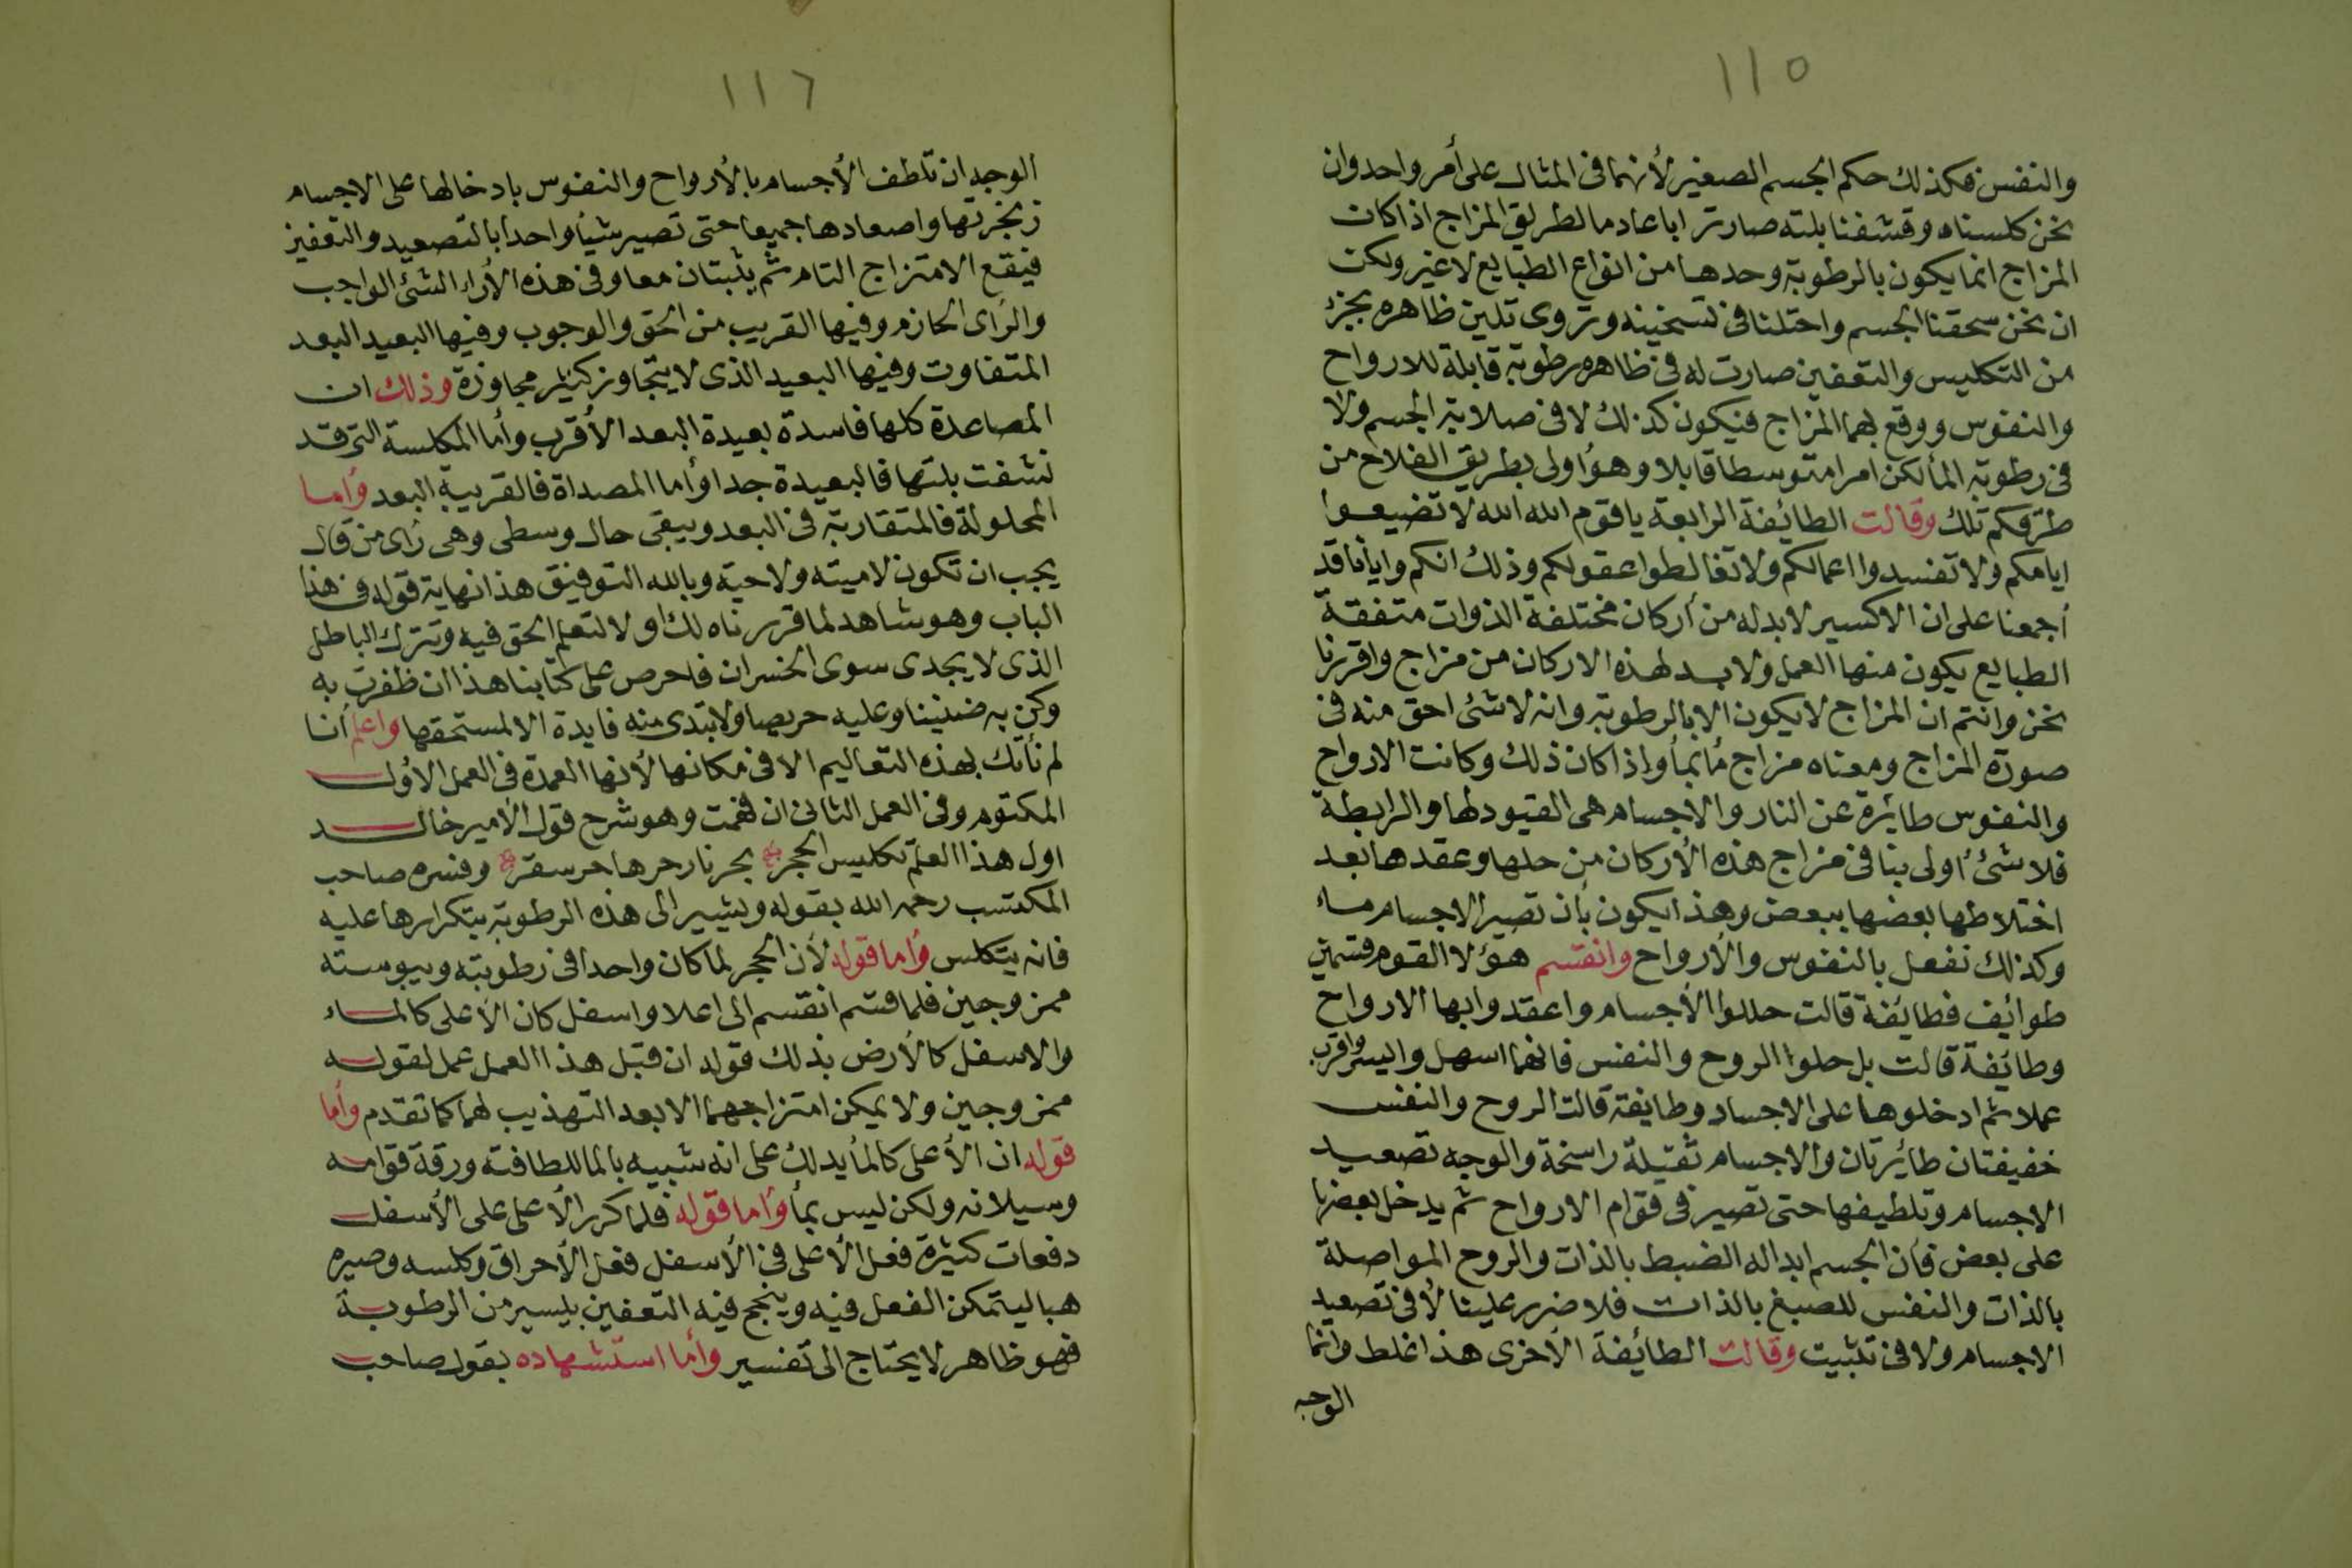 ١١٥
والنفس فكذلك حكم الجسم الصغير لأنهما فى المثال على أمر واحد وان
نحن كلسناه وقشفنا بلته صار ترابا عادما لطريق المزاج اذا كان
المزاج انما يكون بالرطوبة وحدها من انواع الطبايع لا غير ولكن
ان نحن سحقنا الجسم واحتلنا فى تسخينه وتروى تلين ظاهره بجزء
من التكليس والتعفين صارت له فى ظاهره رطوبة قابلة للارواح
والنفوس ووقع لهما المزاج فيكون كذلك لا فى صلابة الجسم ولا
فى رطوبة الما لكن امرا متوسطا قابلا وهو أولى بطريق الفلاح من
طرقكم تلك وقالت الطائفة الرابعة يا قوم الله الله لا تضيعوا
ايامكم ولا تفسدوا اعمالكم ولا تغالطوا عقولكم وذلك انكم وايانا قد
أجمعنا على ان الاكسير لا بد له من أركان مختلفة الذوات متفقة
الطبايع يكون منها العمل ولا بد لهذه الاركان من مزاج واقررنا
نحن وانتم ان المزاج لا يكون الا بالرطوبة وانه لا شئ احق منه فى
صورة المزاج ومعناه مزاج مأ بمأ وإذا كان ذلك وكانت الارواح
والنفوس طائرة عن النار والاجسام هى القيود لها والرابطة
فلا شئ أولى بنا فى مزاج هذه الأركان من حلها وعقدها بعد
اختلاطها بعضها ببعض وهذا يكون بأن تصير الاجسام ماء
وكذلك نفعل بالنفوس والأرواح وانقسم هؤلا القوم قسمين
طوائف فطائفة قالت حللوا الأجسام واعقدوا بها الارواح
وطائفة قالت بل حلوا الروح والنفس فانهما اسهل وايسر واقرب
عملا ثم ادخلوها على الاجساد وطايفة قالت الروح والنفس
خفيفتان طائرتان والاجسام ثقيلة راسخة والوجه تصعيد
الاجسام وتلطيفها حتى تصير فى قوام الارواح ثم يدخل بعضها
على بعض فأن الجسم ابدا له الضبط بالذات والروح المواصلة
بالذات والنفس للصبغ بالذات فلا ضرر علينا لأ فى تصعيد
الاجسام ولا فى تثبيت وقالت الطائفة الأخرى هذا غلط وانما
الوجه
١١٦
الوجه ان تلطف الأجسام بالأرواح والنفوس بادخالها على الاجسام
زنجرتها واصعادها جميعا حتى تصير شيأ واحدا بالتصعيد والتعفين
فيقع الامتزاج التام ثم يثبتان معا وفى هذه الأراء الشئ الواجب
والرأى الحازم وفيها القريب من الحق والوجوب وفيها البعيد البعد
المتفاوت وفيها البعيد الذى لا يتجاوز كثير مجاوزة وذلك ان
المصاعدة كلها فاسدة بعيدة البعد الأقرب وأما المكلسة التى قد
نشفت بلتها فالبعيدة جدا وأما المصداة فالقريبة البعد وأما
المحلولة فالمتقاربة فى البعد ويبقى حال وسطى وهى رأى من قال
يجب ان تكون لا ميته ولا حية وبالله التوفيق هذا نهاية قوله فى هذا
الباب وهو شاهد لما قررناه لك اولا لتعلم الحق فيه وتترك الباطل
الذى لا يجدى سوى الخسران فاحرص على كتابنا هذا ان ظفرت به
وكن به ضنينا وعليه حريصا ولا تبتدى منه فايدة الا لمستحقها واعلم أنا
لم نأتك بهذه التعاليم الا فى مكانها لأنها العمدة فى العمل الأول
المكتوم وفى العمل الثانى ان فهمت وهو شرح قول الأمير خالد
اول هذا العلم تكليس الحجر بحر نار حرها حر سقر وفسره صاحب
المكتسب رحمه الله بقوله ويشير الى هذه الرطوبة بتكرارها عليه
فانه يتكلس وأما قوله لأن الحجر لما كان واحدا فى رطوبته ويبوسته
ممزوجين فلما قسم انقسم الى اعلا واسفل كان الأعلى كالماء
والاسفل كالأرض بذلك قوله ان قبل هذا العمل عمل لقوله
ممزوجين ولا يمكن امتزاجهما الا بعد التهذيب لهما كما تقدم وأما
قوله ان الأعلى كالمأ يدلك على انه شبيه بالما للطافته ورقة قوامه
وسيلانه ولكن ليس بمأ وأما قوله فلما كرر الأعلى على الأسفل
دفعات كثيرة فعل الأعلى فى الأسفل فعل الأحراق وكلسه وصيره
هبا ليتمكن الفعل فيه وينجح فيه التعفين بيسير من الرطوبة
فهو ظاهر لا يحتاج الى تفسير وأما استشهاده بقول صاحب